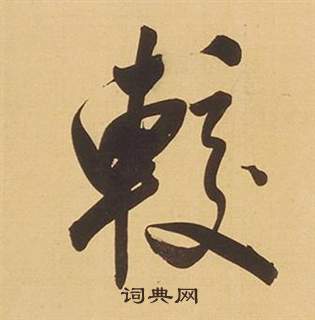 較
词典网